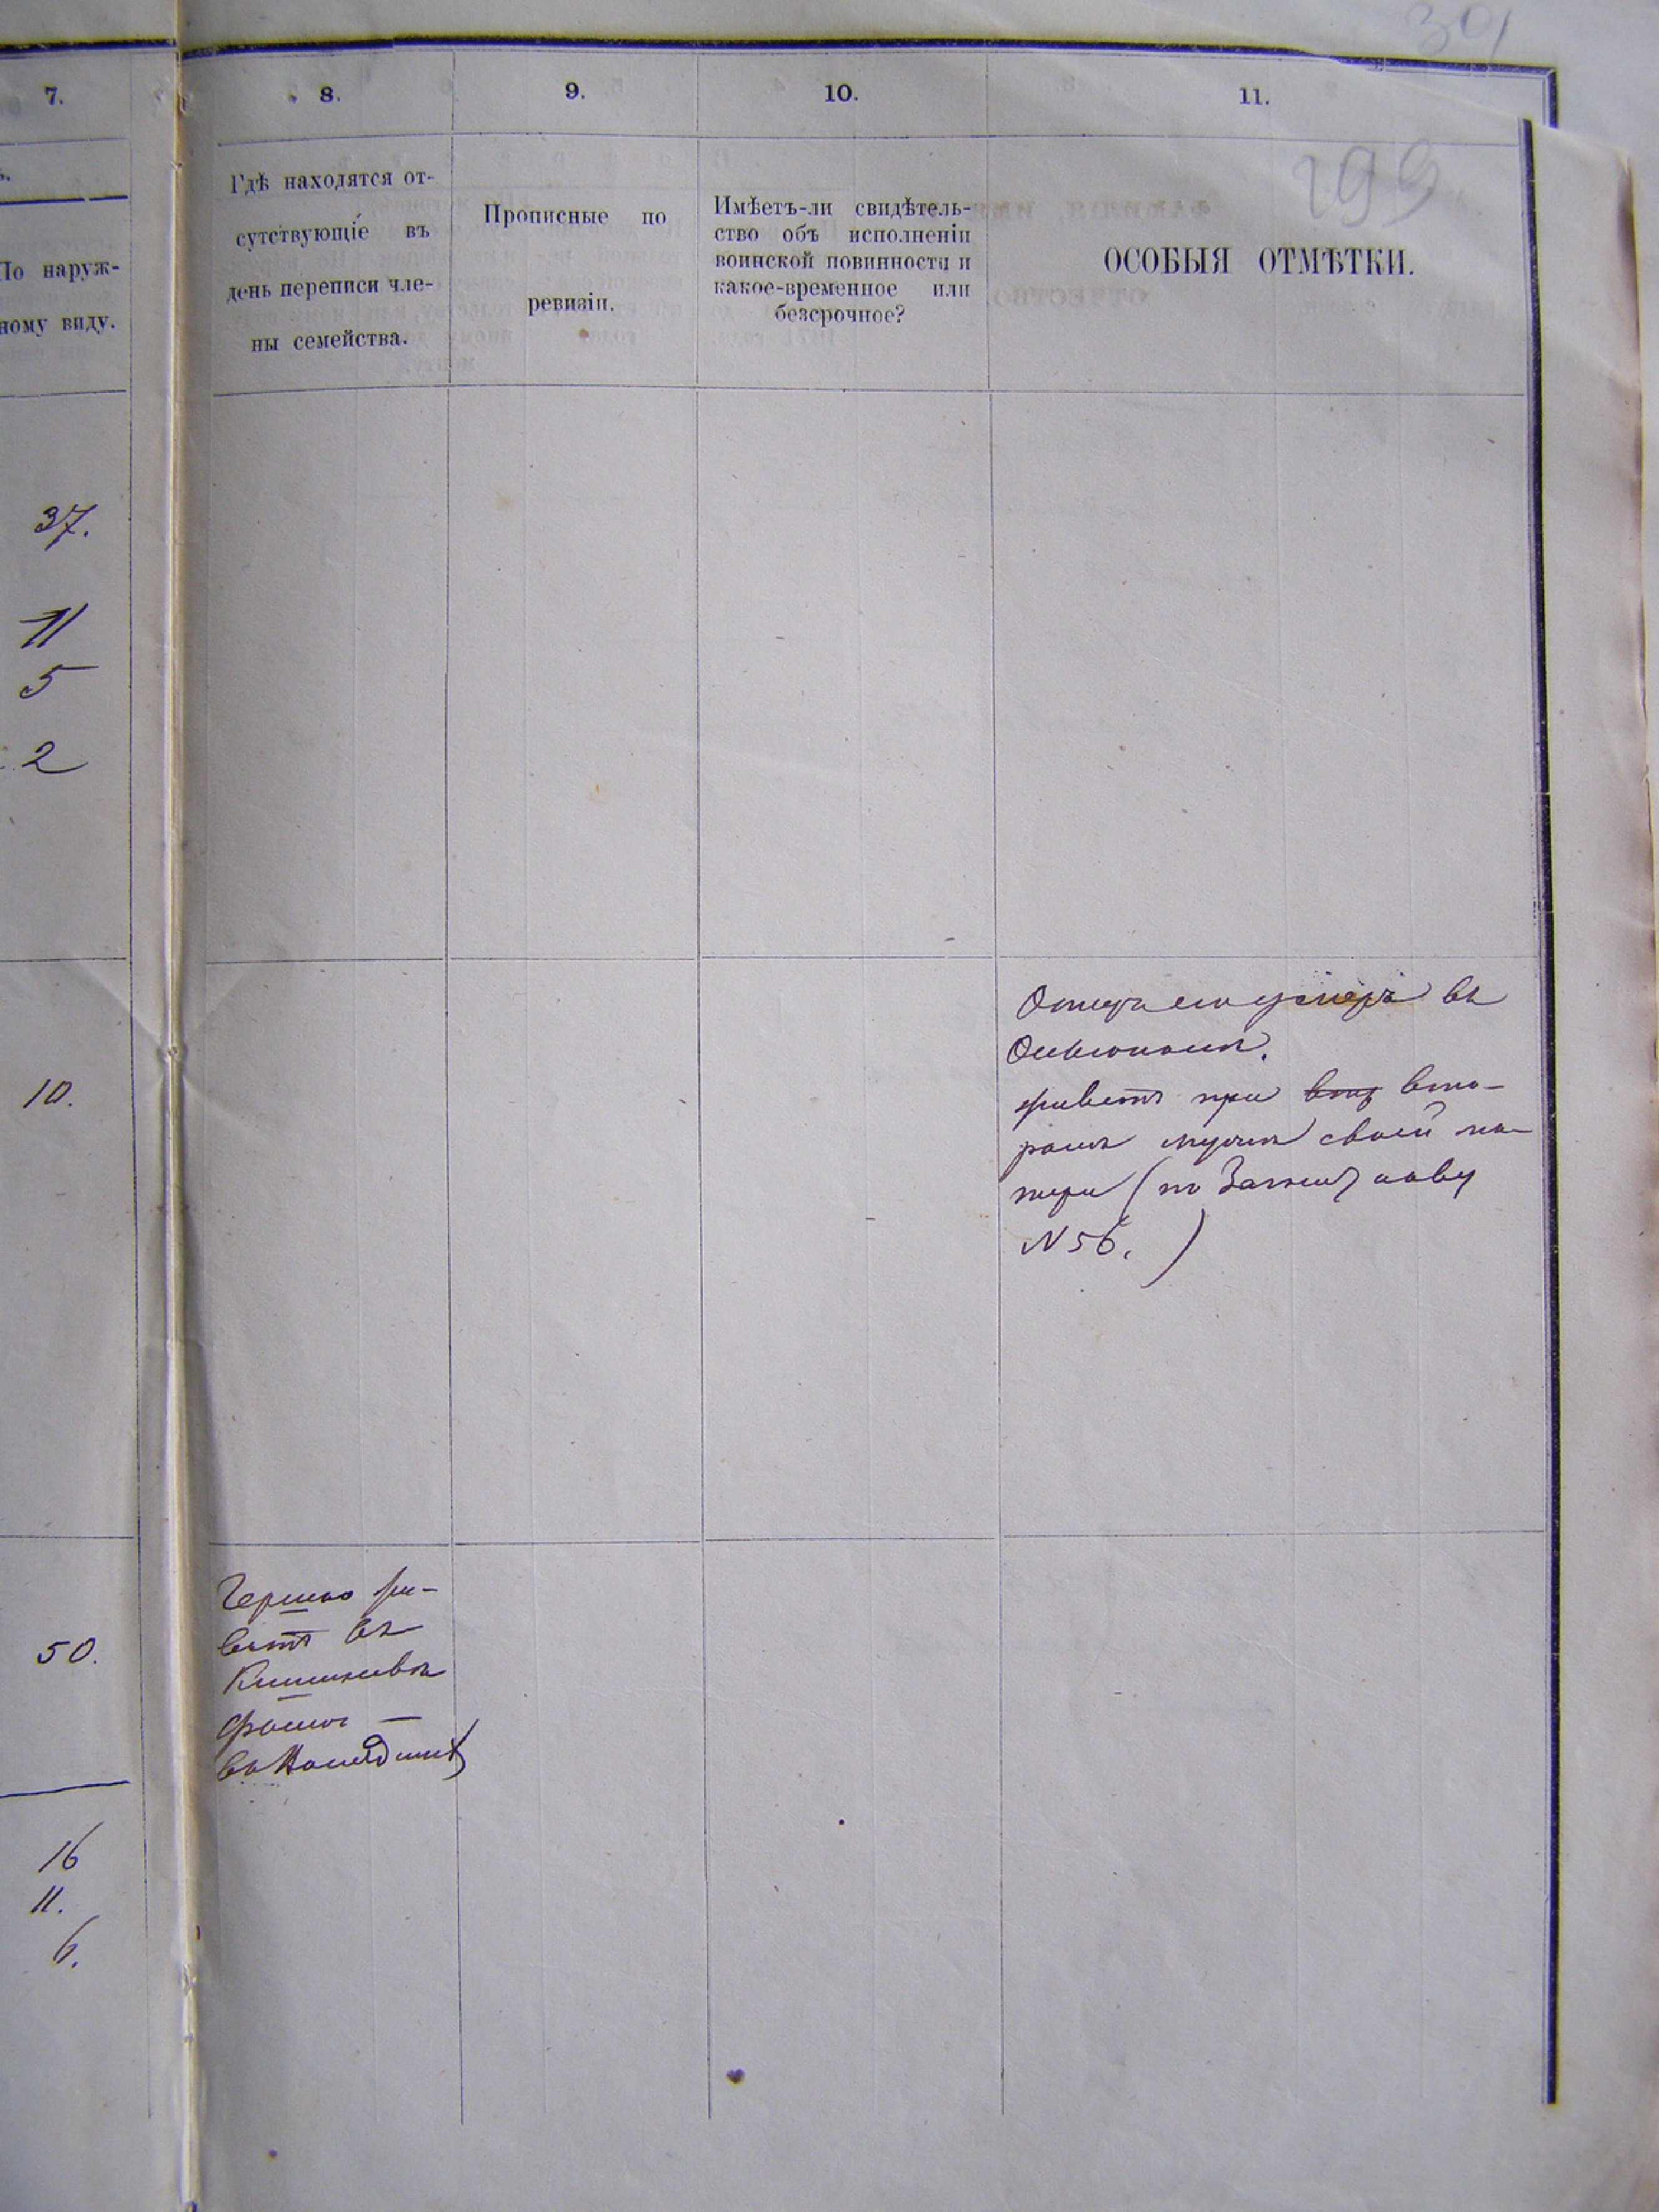 39
7.
8.
9.
10.
11.
199
По наруж-
ному виду.
Гдѣ находятся от-
сутствующіе въ
день переписи чле-
ны семейства.
Прописные по
ревизіи.
Имѣетъ-ли свидѣтель-
ство объ исполненіи
воинской повинности и
какое-временное или
безсрочное?
ОСОБЫЯ ОТМѢТКИ.
37.
11
5
2
10.
Отецъ его умеръ въ
живетъ при вто-
ромъ мужѣ своей ма-
тери (по
N 56.)
50.
Гершко жи-
ветъ въ
Кишиневѣ
въ
16
11.
6.